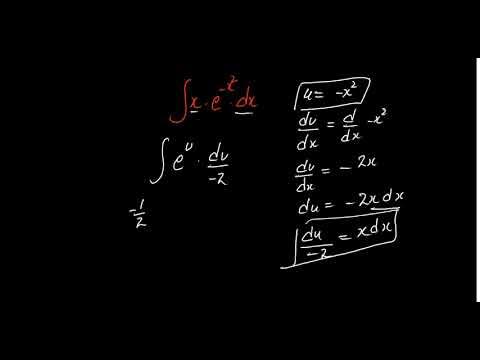 ∫x·e^-x²·dx
∫e^u · du/-2
-1/2
u = -x²
du/dx = d/dx -x²
du/dx = -2x
du = -2x dx
du/-2 = x dx